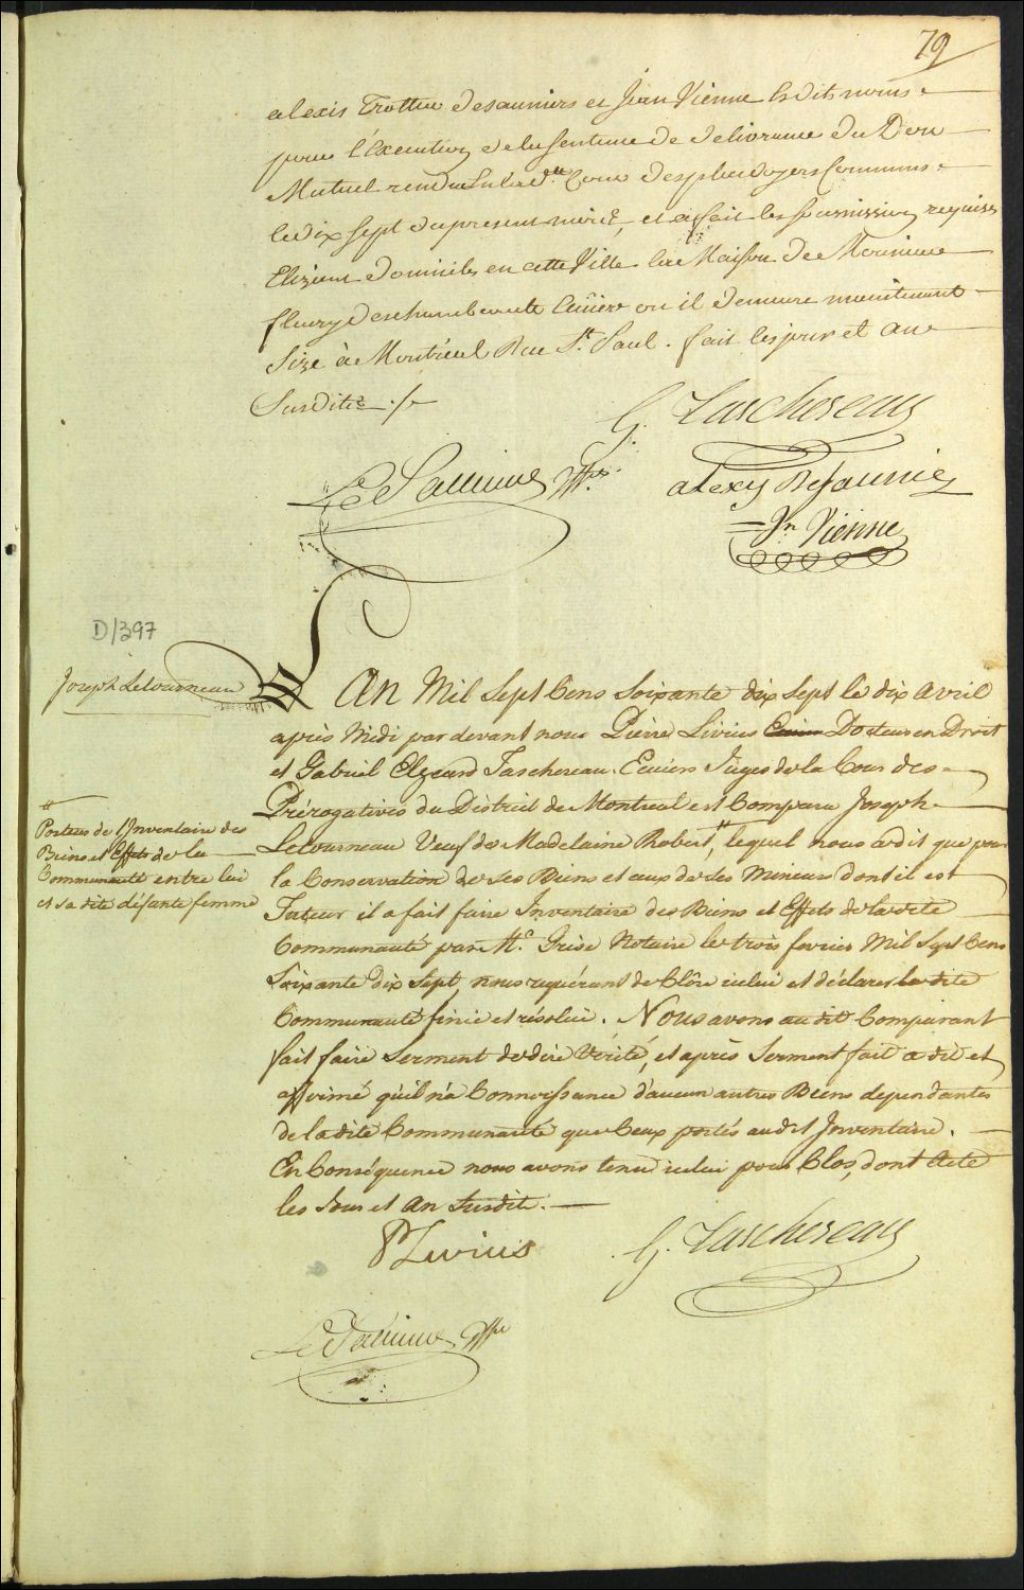 79
alexis Trottier Desauniers et Jean Vienne Lesdits noms
pour l'Execution de la Sentence de delivrance du Don
Mutuel rendue en la d.te Cour Desplaidoyers Communs
le dix sept du present mois, et a fait les soumissions requises
Elizient domicile en cette Ville la Maison de Monsieur
fleury Deschambeault Ecuier ou il demeure maintenant
Size à Montréal Rue St. Paul. fait les jour et an
Susdits ./.
G. Taschereau
LeSaulnier Gffier.
alexy Desaunié
Jn Vienne
D/397
Joseph Letourneau
An Mil Sept Cens Soixante dix Sept le dix Avril
après Midi par devant nous Pierre Livius Ecuier Docteur en Droit
et Gabriel Elzeard Taschereau Ecuiers Juges de la Cour des
Prérogatives du District de Montreal est Comparu Joseph
Letourneau Veuf de Madelaine Robert, # lequel nous a dit que pour
la Conservation de ses Biens et ceux de ses Mineurs dont il est
Tuteur il a fait faire Inventaire des Biens et Effets de la dite
Communauté par Me. Grisé Notaire le trois fevrier Mil Sept Cens
Soixante dix Sept, nous requérant de Clôre icelui et déclarer la dite
Communauté finie et résolüe. Nous avons au dit Comparant
fait faire Serment de dire Vérité, et après Serment fait a dit et
affirmé qu'il n'a Connoissance d'aucun autres Biens dependantes
de la dite Communauté que Ceux portés audit Inventaire.
En Conséquence nous avons tenu icelui pour Clos, dont Acte
les Jour et An Susdits.
# Porteur de l'Inventaire des
Biens et Effets de la
Communauté entre lui
et sa dite défunte femme
P Livius
G. Taschereau
LeSaulnier Gffier